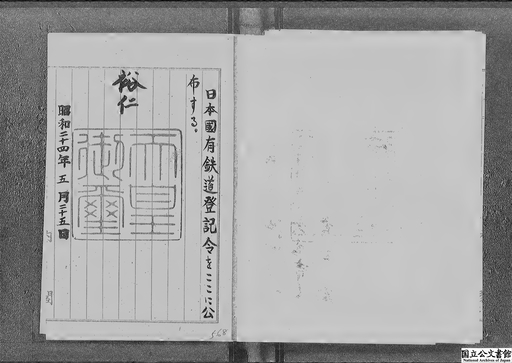 日本國有鉄道登記令をここに公
布する。
裕仁
天皇
御璽
昭和二十四年五月二十五日
568
国立公文書館
National Archives of Japan